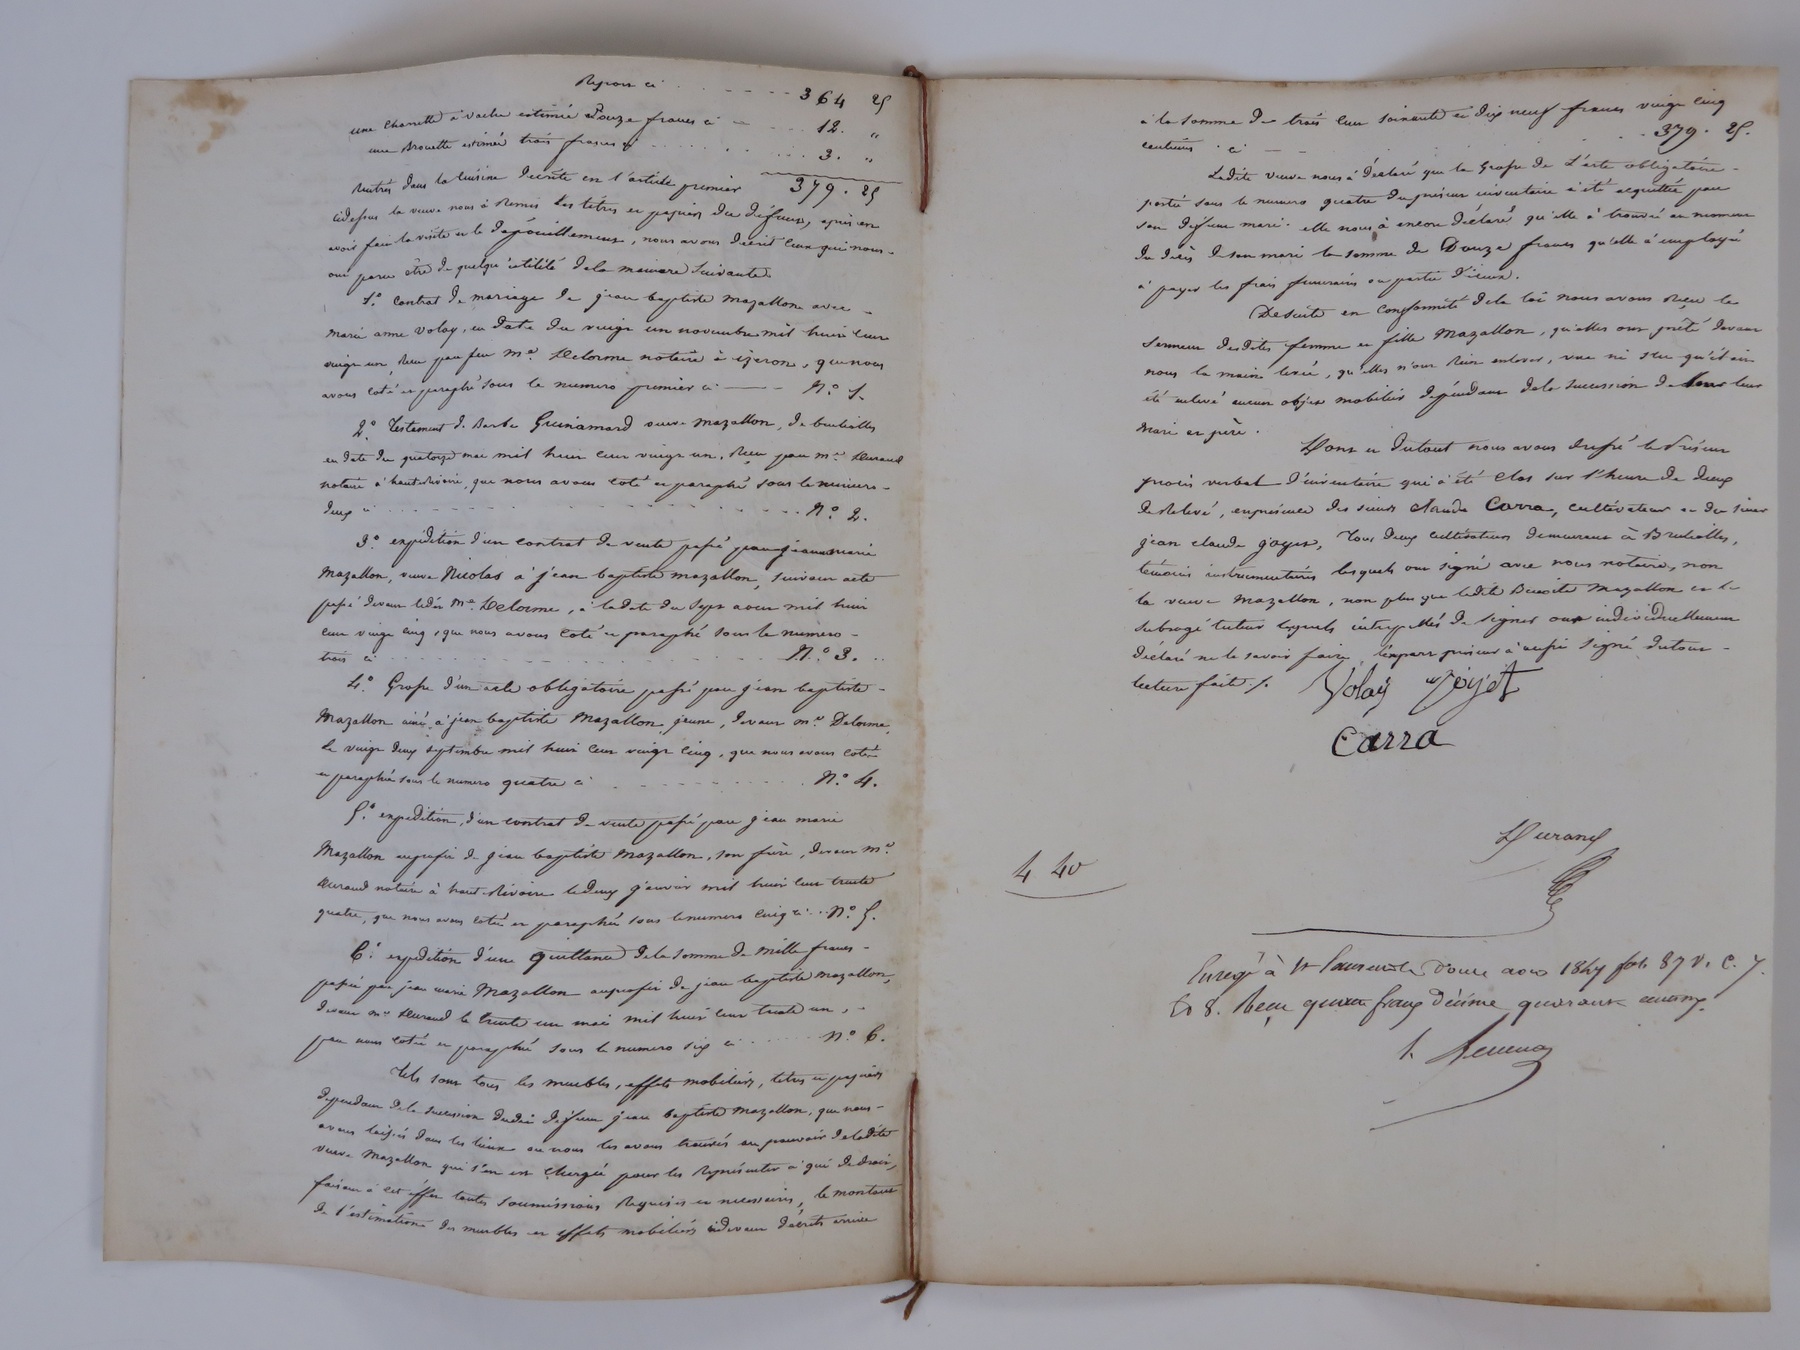 Report ci . . . . . . 364 25
une charrette à vache estimée Douze francs ci — . . . 12. "
une Brouette estimée trois francs ci . . . . . . . 3. "
379 . 25
Rentrés dans la Cuisine décrite en l'article premier
cidessus la veuve nous à Remis les titres et papiers du défunt, après en
avoir fait la visite et le Dépouillement, nous avons décrit ceux qui nous-
ont paru être de quelqu'utilité de la maniere suivante
1.° Contrat de mariage de jean baptiste Mazallon avec -
marie anne Volay, en date du vingt un novembre mil huit cent
vingt un, Reçu par feu m.e Delorme notaire à izeron, que nous
avons coté et paraphé sous le numero premier ci — — N.° 1.
2.° Testament de Barbe Guinamard veuve Mazallon, de brulialles
en date du quatorze mai mil huit cent vingt un, Reçu par m.e Durand
notaire à hauterivoire, que nous avons coté et paraphé sous le numero -
deux ci . . . . . . . . . . . . N.° 2.
3.° expédition d'un contrat de vente passé par jeanne marie
Mazallon, veuve Nicolas à jean baptiste Mazallon, suivant acte
passé devant ledit M.e Delorme, à la date du Sept aout mil huit
cent vingt cinq, que nous avons coté et paraphé sous le numero -
trois ci . . . . . . . . . . . . N.° 3. . .
4.° Grosse d'un acte obligatoire passé par jean baptiste -
Mazallon ainé à jean baptiste Mazallon jeune, devant m.e Delorme,
le vingt deux septembre mil huit cent vingt cinq, que nous avons coté
et paraphé sous le numero quatre ci . . . . . . . N.° 4.
5.° expédition, d'un contrat de vente passé par jean marie
Mazallon auprofit de jean baptiste Mazallon, son frère, devant m.e
Durand notaire à haut-Rivoire le deux janvier mil huit cent trente
quatre, que nous avons coté et paraphé sous le numero cinq ci . . N.° 5.
6.° expédition d'une quittance de la somme de mille francs -
passée par jean marie Mazallon auprofit de jean baptiste Mazallon,
devant m.e Durand le trente un mai mil huit cent trente un, -
par nous cotée et paraphée sous le numero six ci . . . . . N.° 6.
Tels sont tous les meubles, effets mobiliers, titres et papiers
dependant de la succession dudit défunt jean baptiste Mazallon, que nous-
avons laissés dans les lieux ou nous les avons trouvés au pouvoir de ladite
veuve Mazallon qui s'en est chargée pour les Représenter à qui de droit,
faisant à cet effet toutes soumissions Requises et necessaires, le montant
de l'estimation des meubles et effets mobiliers cidevant décrits arrive
à la somme de trois cent soixante et dix neuf francs vingt cinq
centimes . ci — — . . . . 379 . 25.
Ladite veuve nous à déclaré que la Grosse de l'acte obligatoire -
porté sous le numero quatre du présent inventaire à été acquittée par
son défunt mari. elle nous à encore déclaré qu'elle à trouvé au moment
du décès de son mari la somme de Douze francs qu'elle à employé
à payer les frais funeraires ou partie d'iceux.
De suite en conformité de la loi nous avons Reçu le
serment desdites femme et fille Mazallon, qu'elles ont prêté devant
nous la main levée, qu'elles n'ont Rien enlevé, vu ni su qu'il ait
été enlevé aucun objet mobilier dépendant de la succession de leur
mari et père.
Dont et du tout nous avons dressé le Présent
procès verbal d'inventaire qui à été clos sur l'heure de deux
de Relevé, en présence des sieurs Claude Carra, cultivateur et du sieur
jean claude joyet, tous deux cultivateurs demeurant à Brulialles,
temoins instrumentaires lesquels ont signé avec nous notaire, non
la veuve Mazallon, non plus que ladite Benoite Mazallon et le
subrogé tuteur lesquels interpellés de signer ont individuellement
déclaré ne le savoir faire, l'expert priseur à aussi signé du tout -
lecture faite ./.
Volay Joyet
Carra
Durand
4 40
Enregé à St Laurent de Chamousset aout 1847 fol. 87 v. C. 7.
et 8. Reçu quatre francs décime quarante centimes.